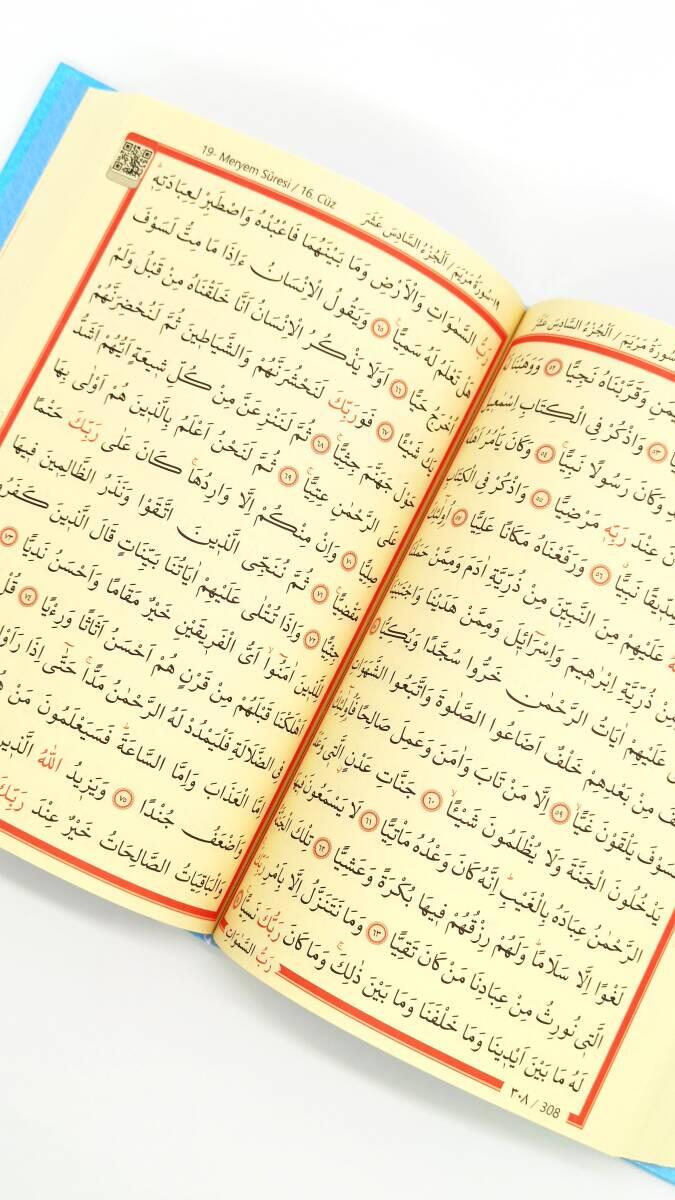 سُورَةُ مَرْيَمَ / اَلْجُزْءُ السَّادِسَ عَشَرَ
وَقَرَّبْنَاهُ نَجِيًّا ﴿٥٢﴾ وَوَهَبْنَا
﴿٥٣﴾ وَاذْكُرْ فِي الْكِتَابِ اِسْمٰع۪يلَ
وَكَانَ رَسُولًا نَبِيًّا ﴿٥٤﴾ وَكَانَ يَأْمُرُ اَهْلَهُ
عِنْدَ رَبِّه۪ مَرْضِيًّا ﴿٥٥﴾ وَاذْكُرْ فِي الْكِتَابِ
صِدّ۪يقًا نَبِيًّا ﴿٥٦﴾ وَرَفَعْنَاهُ مَكَانًا عَلِيًّا ﴿٥٧﴾ اُو۬لٰٓئِكَ
عَلَيْهِمْ مِنَ النَّبِيّ۪نَ مِنْ ذُرِّيَّةِ اٰدَمَ وَمِمَّنْ حَمَلْنَا
مِنْ ذُرِّيَّةِ اِبْرٰه۪يمَ وَاِسْرَٓاء۪يلَ وَمِمَّنْ هَدَيْنَا وَاجْتَبَيْنَا
عَلَيْهِمْ اٰيَاتُ الرَّحْمٰنِ خَرُّوا سُجَّدًا وَبُكِيًّا ﴿٥٨﴾
مِنْ بَعْدِهِمْ خَلْفٌ اَضَاعُوا الصَّلٰوةَ وَاتَّبَعُوا الشَّهَوَاتِ
فَسَوْفَ يَلْقَوْنَ غَيًّا ﴿٥٩﴾ اِلَّا مَنْ تَابَ وَاٰمَنَ وَعَمِلَ صَالِحًا فَاُو۬لٰٓئِكَ
يَدْخُلُونَ الْجَنَّةَ وَلَا يُظْلَمُونَ شَيْـًٔا ﴿٦٠﴾ جَنَّاتِ عَدْنٍ الَّت۪ي وَعَدَ
الرَّحْمٰنُ عِبَادَهُ بِالْغَيْبِ اِنَّهُ كَانَ وَعْدُهُ مَأْتِيًّا ﴿٦١﴾ لَا يَسْمَعُونَ ف۪يهَا
لَغْوًا اِلَّا سَلَامًا وَلَهُمْ رِزْقُهُمْ ف۪يهَا بُكْرَةً وَعَشِيًّا ﴿٦٢﴾ تِلْكَ الْجَنَّةُ
الَّت۪ي نُورِثُ مِنْ عِبَادِنَا مَنْ كَانَ تَقِيًّا ﴿٦٣﴾ وَمَا نَتَنَزَّلُ اِلَّا بِاَمْرِ رَبِّكَ
لَهُ مَا بَيْنَ اَيْد۪ينَا وَمَا خَلْفَنَا وَمَا بَيْنَ ذٰلِكَ وَمَا كَانَ رَبُّكَ نَسِيًّا
رَبُّ السَّمٰوَاتِ
٣٠٨ / 308
١٩- سُورَةُ مَرْيَمَ / اَلْجُزْءُ السَّادِسَ عَشَرَ
19- Meryem Sûresi / 16. Cüz
رَبُّ السَّمٰوَاتِ وَالْاَرْضِ وَمَا بَيْنَهُمَا فَاعْبُدْهُ وَاصْطَبِرْ لِعِبَادَتِه۪
هَلْ تَعْلَمُ لَهُ سَمِيًّا ﴿٦٥﴾ وَيَقُولُ الْاِنْسَانُ ءَاِذَا مَا مِتُّ لَسَوْفَ
اُخْرَجُ حَيًّا ﴿٦٦﴾ اَوَلَا يَذْكُرُ الْاِنْسَانُ اَنَّا خَلَقْنَاهُ مِنْ قَبْلُ وَلَمْ
يَكُ شَيْـًٔا ﴿٦٧﴾ فَوَرَبِّكَ لَنَحْشُرَنَّهُمْ وَالشَّيَاط۪ينَ ثُمَّ لَنُحْضِرَنَّهُمْ
حَوْلَ جَهَنَّمَ جِثِيًّا ﴿٦٨﴾ ثُمَّ لَنَنْزِعَنَّ مِنْ كُلِّ ش۪يعَةٍ اَيُّهُمْ اَشَدُّ
عَلَى الرَّحْمٰنِ عِتِيًّا ﴿٦٩﴾ ثُمَّ لَنَحْنُ اَعْلَمُ بِالَّذ۪ينَ هُمْ اَوْلٰى بِهَا
صِلِيًّا ﴿٧٠﴾ وَاِنْ مِنْكُمْ اِلَّا وَارِدُهَا كَانَ عَلٰى رَبِّكَ حَتْمًا
مَقْضِيًّا ﴿٧١﴾ ثُمَّ نُنَجِّي الَّذ۪ينَ اتَّقَوْا وَنَذَرُ الظَّالِم۪ينَ ف۪يهَا
جِثِيًّا ﴿٧٢﴾ وَاِذَا تُتْلٰى عَلَيْهِمْ اٰيَاتُنَا بَيِّنَاتٍ قَالَ الَّذ۪ينَ كَفَرُوا
لِلَّذ۪ينَ اٰمَنُوا اَيُّ الْفَر۪يقَيْنِ خَيْرٌ مَقَامًا وَاَحْسَنُ نَدِيًّا ﴿٧٣﴾
اَهْلَكْنَا قَبْلَهُمْ مِنْ قَرْنٍ هُمْ اَحْسَنُ اَثَاثًا وَرِءْيًا ﴿٧٤﴾ قُلْ
فِي الضَّلَالَةِ فَلْيَمْدُدْ لَهُ الرَّحْمٰنُ مَدًّا حَتّٰٓى اِذَا رَاَوْا
اِمَّا الْعَذَابَ وَاِمَّا السَّاعَةَ فَسَيَعْلَمُونَ مَنْ هُوَ
وَاَضْعَفُ جُنْدًا ﴿٧٥﴾ وَيَز۪يدُ اللّٰهُ الَّذ۪ينَ
وَالْبَاقِيَاتُ الصَّالِحَاتُ خَيْرٌ عِنْدَ رَبِّكَ